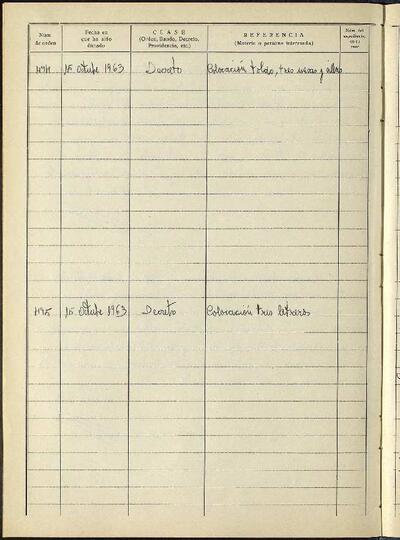 Núm. de orden
Fecha en que ha sido dictado
CLASE
(Orden, Bando, Decreto, Providencia, etc.)
REFERENCIA
(Materia o persona interesada)
Núm. del expediente
15 octubre 1963 Decreto Colocación toldo, tres
15 octubre 1963 Decreto Colocación tres letreros